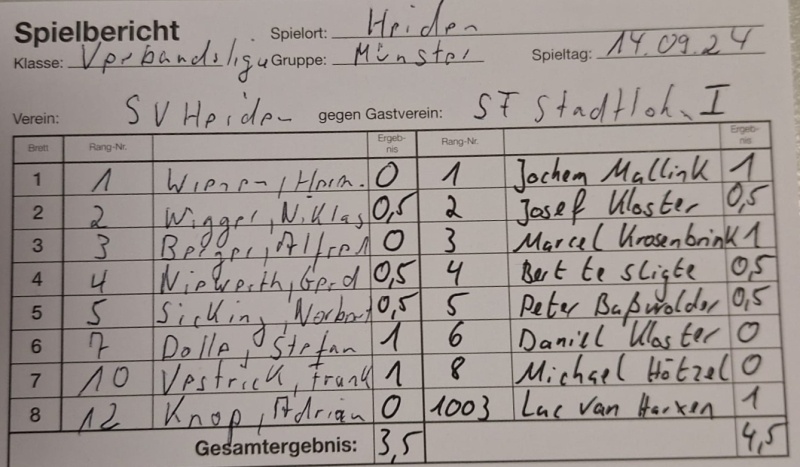 Spielbericht Spielort: Heiden
Klasse: Verbandsliga Gruppe: Münster Spieltag: 14.09.24
Verein: SV Heiden gegen Gastverein: SF Stadtlohn I
Brett Rang-Nr. Ergeb-nis Rang-Nr. Ergeb-nis
1 1 0 1 Jochem Mallink 1
2 2 Wigger, Niklas 0,5 2 Josef Kloster 0,5
3 3 Berger, Alfred 0 3 Marcel Krosenbrink 1
4 4 Niewerth, Gerd 0,5 4 Bert te Sligte 0,5
5 5 Sicking, Norbert 0,5 5 Peter Baßwolder 0,5
6 7 Dolle, Stefan 1 6 Daniel Kloster 0
7 10 Vestrick, Frank 1 8 Michael Hötzel 0
8 12 Knop, Adrian 0 1003 Luc van Harxen 1
Gesamtergebnis: 3,5 4,5